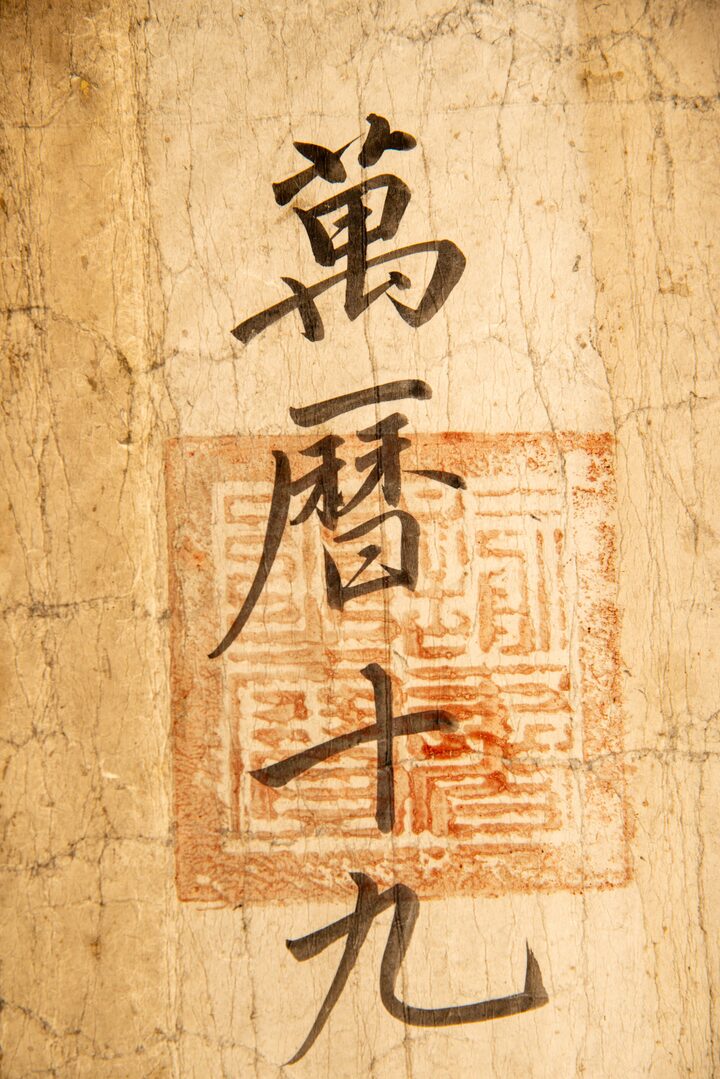 萬曆十九